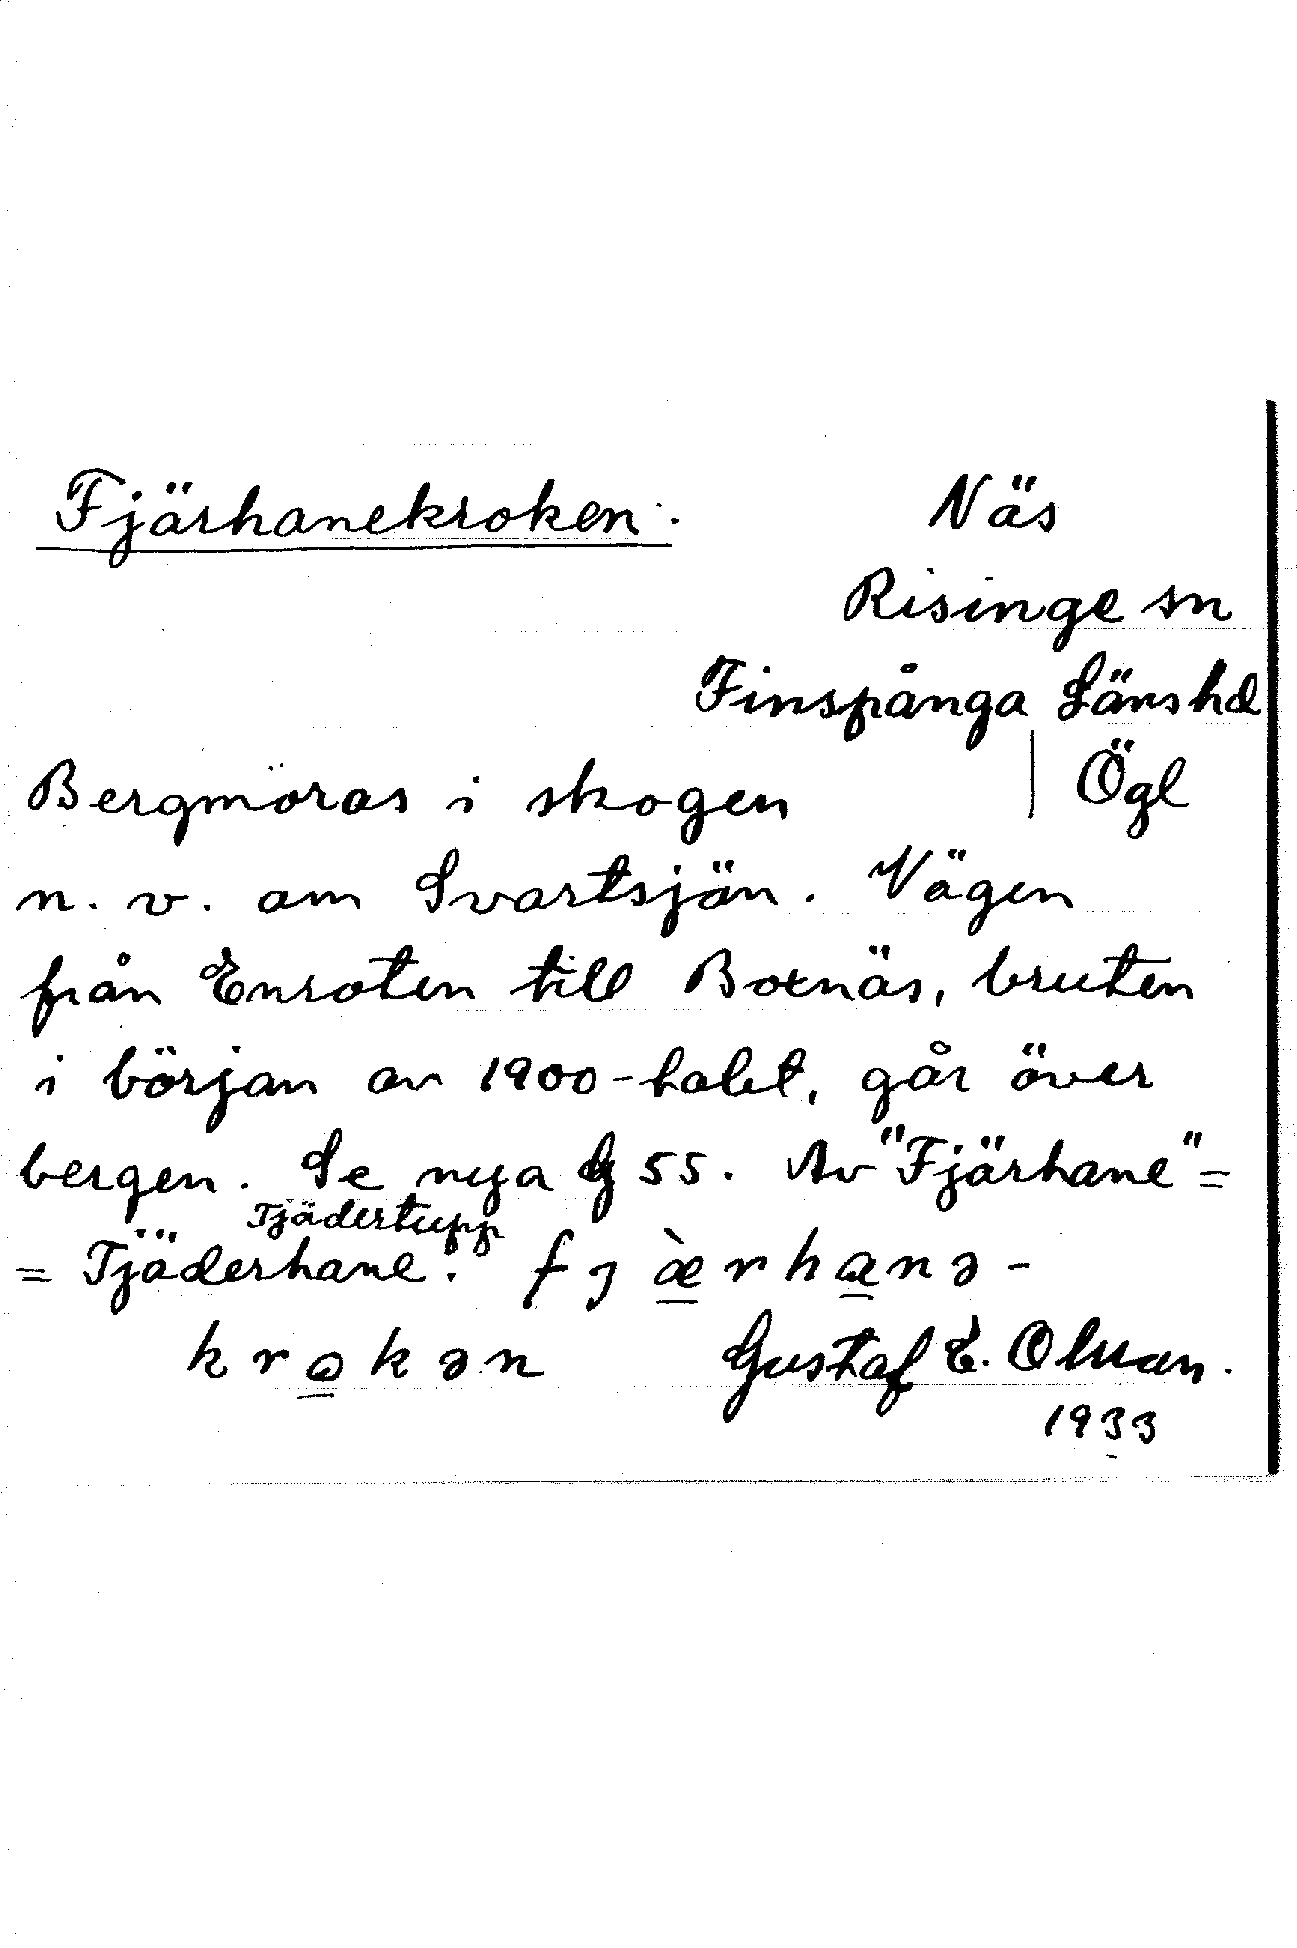 Fjärhanekroken.
Näs
Risinge sn
Finspånga Länshd
Ögl
Bergmoras i skogen
n. v. om Svartsjön. Vägen
från Enroten till Botnäs, bruten
i början av 1900-talet, går över
bergen. Se nya G 55. Av "Fjärhane" =
Tjädertupp
= Tjäderhane. fj æ̀rhanə-
krokən
Gustaf E. Olsson.
1933